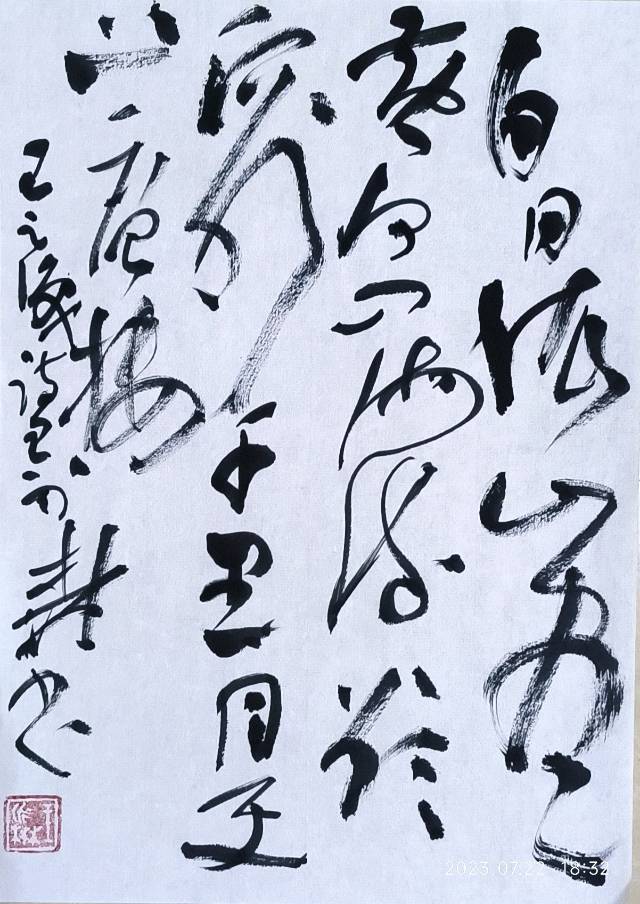 白日依山尽
黄河入海流欲
窮千里目更
上一层楼
王之涣诗
书
2023.07.23 18:32